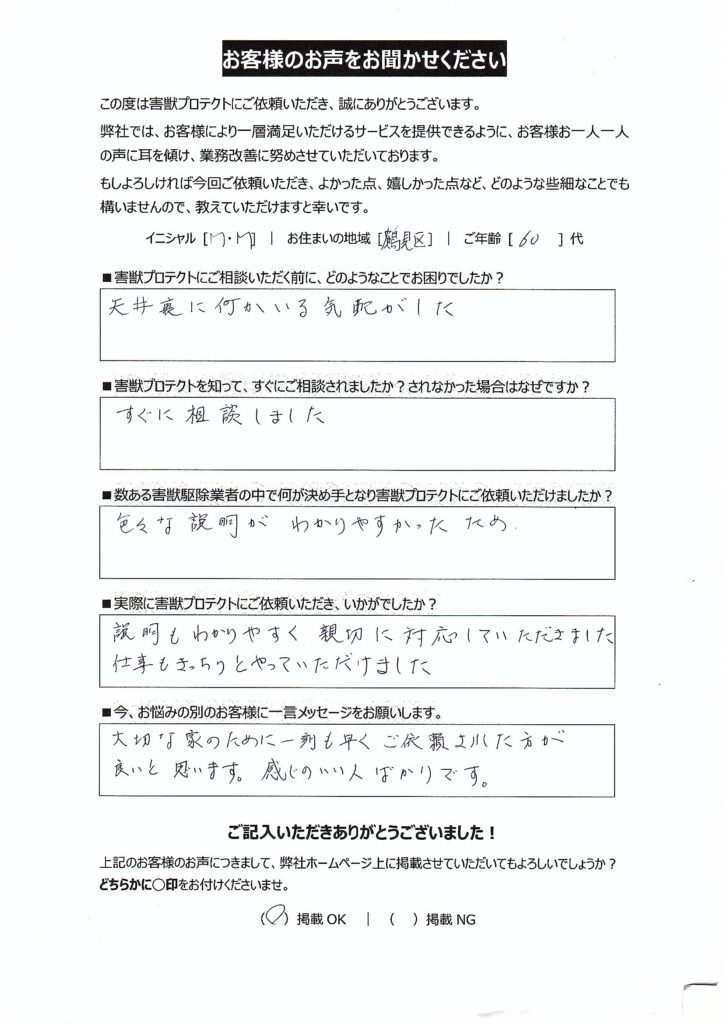 お客様のお声をお聞かせください
この度は害獣プロテクトにご依頼いただき、誠にありがとうございます。
弊社では、お客様により一層満足いただけるサービスを提供できるように、お客様お一人一人
の声に耳を傾け、業務改善に努めさせていただいております。
もしよろしければ今回ご依頼いただき、よかった点、嬉しかった点など、どのような些細なことでも
構いませんので、教えていただけますと幸いです。
イニシャル [M・M] | お住まいの地域 [鶴見区] | ご年齢 [ 60 ] 代
■害獣プロテクトにご相談いただく前に、どのようなことでお困りでしたか？
天井裏に何かいる気配がした
■害獣プロテクトを知って、すぐにご相談されましたか？されなかった場合はなぜですか？
すぐに相談しました
■数ある害獣駆除業者の中で何が決め手となり害獣プロテクトにご依頼いただけましたか？
色々な説明が わかりやすかった ため.
■実際に害獣プロテクトにご依頼いただき、いかがでしたか？
説明もわかりやすく親切に対応していただきました
仕事もきっちりとやっていただけました
■今、お悩みの別のお客様に一言メッセージをお願いします。
大切な家のために一刻も早くご依頼された方が
良いと思います。感じのいい人ばかりです。
ご記入いただきありがとうございました！
上記のお客様のお声につきまして、弊社ホームページ上に掲載させていただいてもよろしいでしょうか？
どちらかに○印をお付けくださいませ。
(○) 掲載 OK | ( ) 掲載 NG